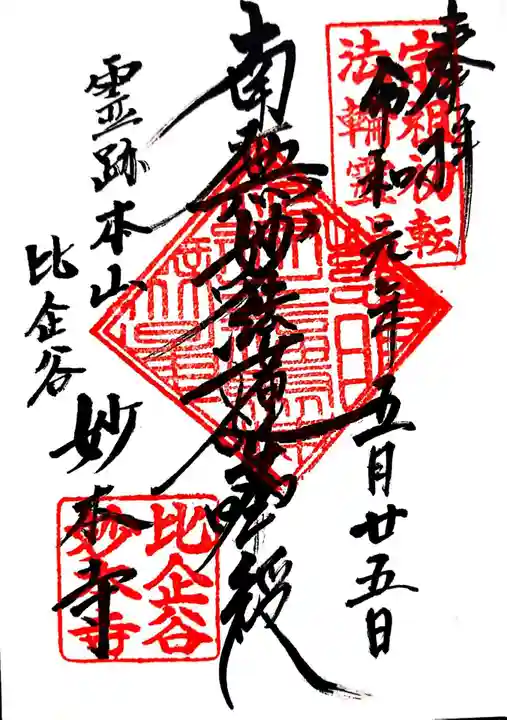 奉拝
令和元年五月廿五日
宗祖初転
法輪霊
南無妙法蓮華経
霊跡本山
比企谷
妙本寺
比企谷
妙本寺